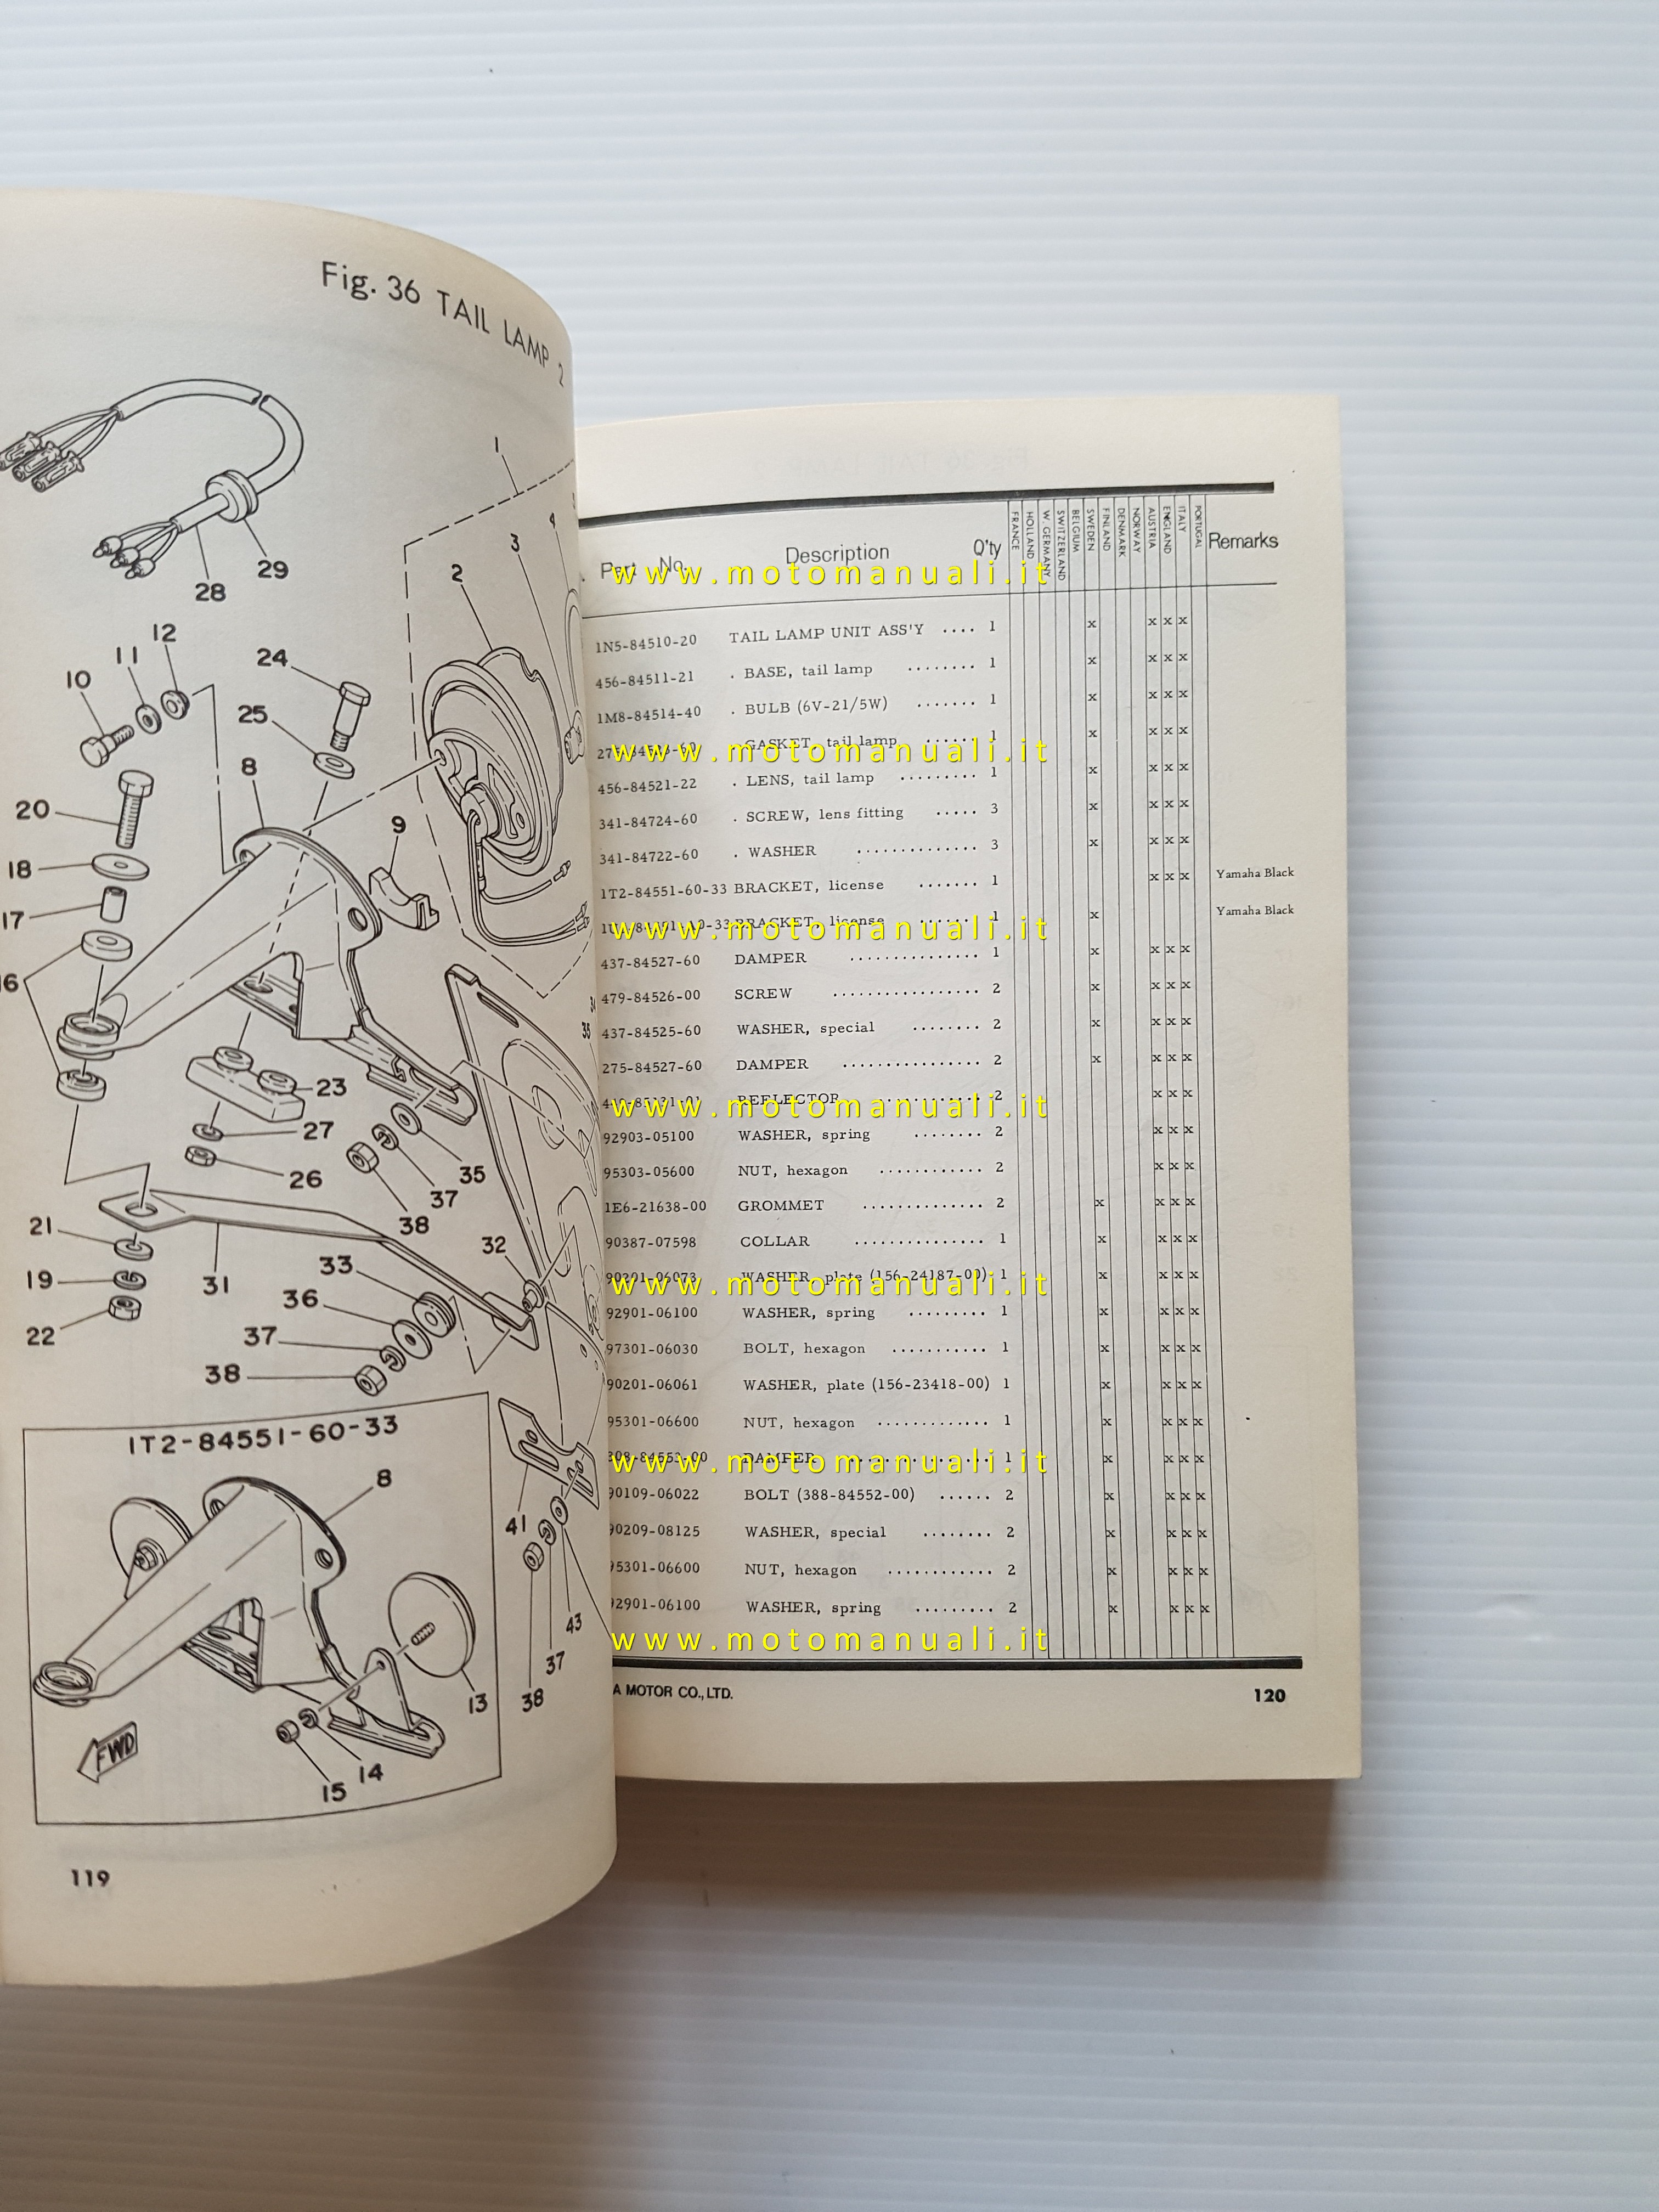 Fig. 36 TAIL LAMP 2
1
2
3
4
28
29
12
11
10
24
25
8
9
20
18
17
16
23
27
26
35
37
38
21
19
22
31
32
33
36
37
38
34
35
1T2-84551-60-33
8
13
14
15
FWD
41
43
37
38
119
Part No. Description Q'ty FRANCE HOLLAND W. GERMANY SWITZERLAND BELGIUM SWEDEN FINLAND DENMARK NORWAY AUSTRIA ENGLAND ITALY PORTUGAL Remarks
www.motomanuali.it
1N5-84510-20 TAIL LAMP UNIT ASS'Y .... 1 x x x x
456-84511-21 . BASE, tail lamp ........ 1 x x x x
1M8-84514-40 . BULB (6V-21/5W) ....... 1 x x x x
GASKET, tail lamp ....... 1 x x x x
www.motomanuali.it
456-84521-22 . LENS, tail lamp ......... 1 x x x x
341-84724-60 . SCREW, lens fitting ..... 3 x x x x
341-84722-60 . WASHER .............. 3 x x x x
1T2-84551-60-33 BRACKET, license ....... 1 x x x Yamaha Black
BRACKET, license ...... 1 x Yamaha Black
www.motomanuali.it
437-84527-60 DAMPER ............... 1 x x x x
479-84526-00 SCREW ................. 2 x x x x
437-84525-60 WASHER, special ........ 2 x x x x
275-84527-60 DAMPER ................ 2 x x x x
REFLECTOR ............ 2 x x x
www.motomanuali.it
92903-05100 WASHER, spring ........ 2 x x x
95303-05600 NUT, hexagon ............ 2 x x x
1E6-21638-00 GROMMET .............. 2 x x x x
90387-07598 COLLAR ............... 1 x x x x
90201-06073 WASHER, plate (156-24187-00) 1 x x x x
www.motomanuali.it
92901-06100 WASHER, spring ......... 1 x x x x
97301-06030 BOLT, hexagon ........... 1 x x x x
90201-06061 WASHER, plate (156-23418-00) 1 x x x x
95301-06600 NUT, hexagon ............. 1 x x x x
DAMPER ............... 1 x x x x
www.motomanuali.it
90109-06022 BOLT (388-84552-00) ...... 2 x x x x
90209-08125 WASHER, special ........ 2 x x x x
95301-06600 NUT, hexagon ............ 2 x x x x
92901-06100 WASHER, spring ......... 2 x x x x
www.motomanuali.it
A MOTOR CO., LTD. 120